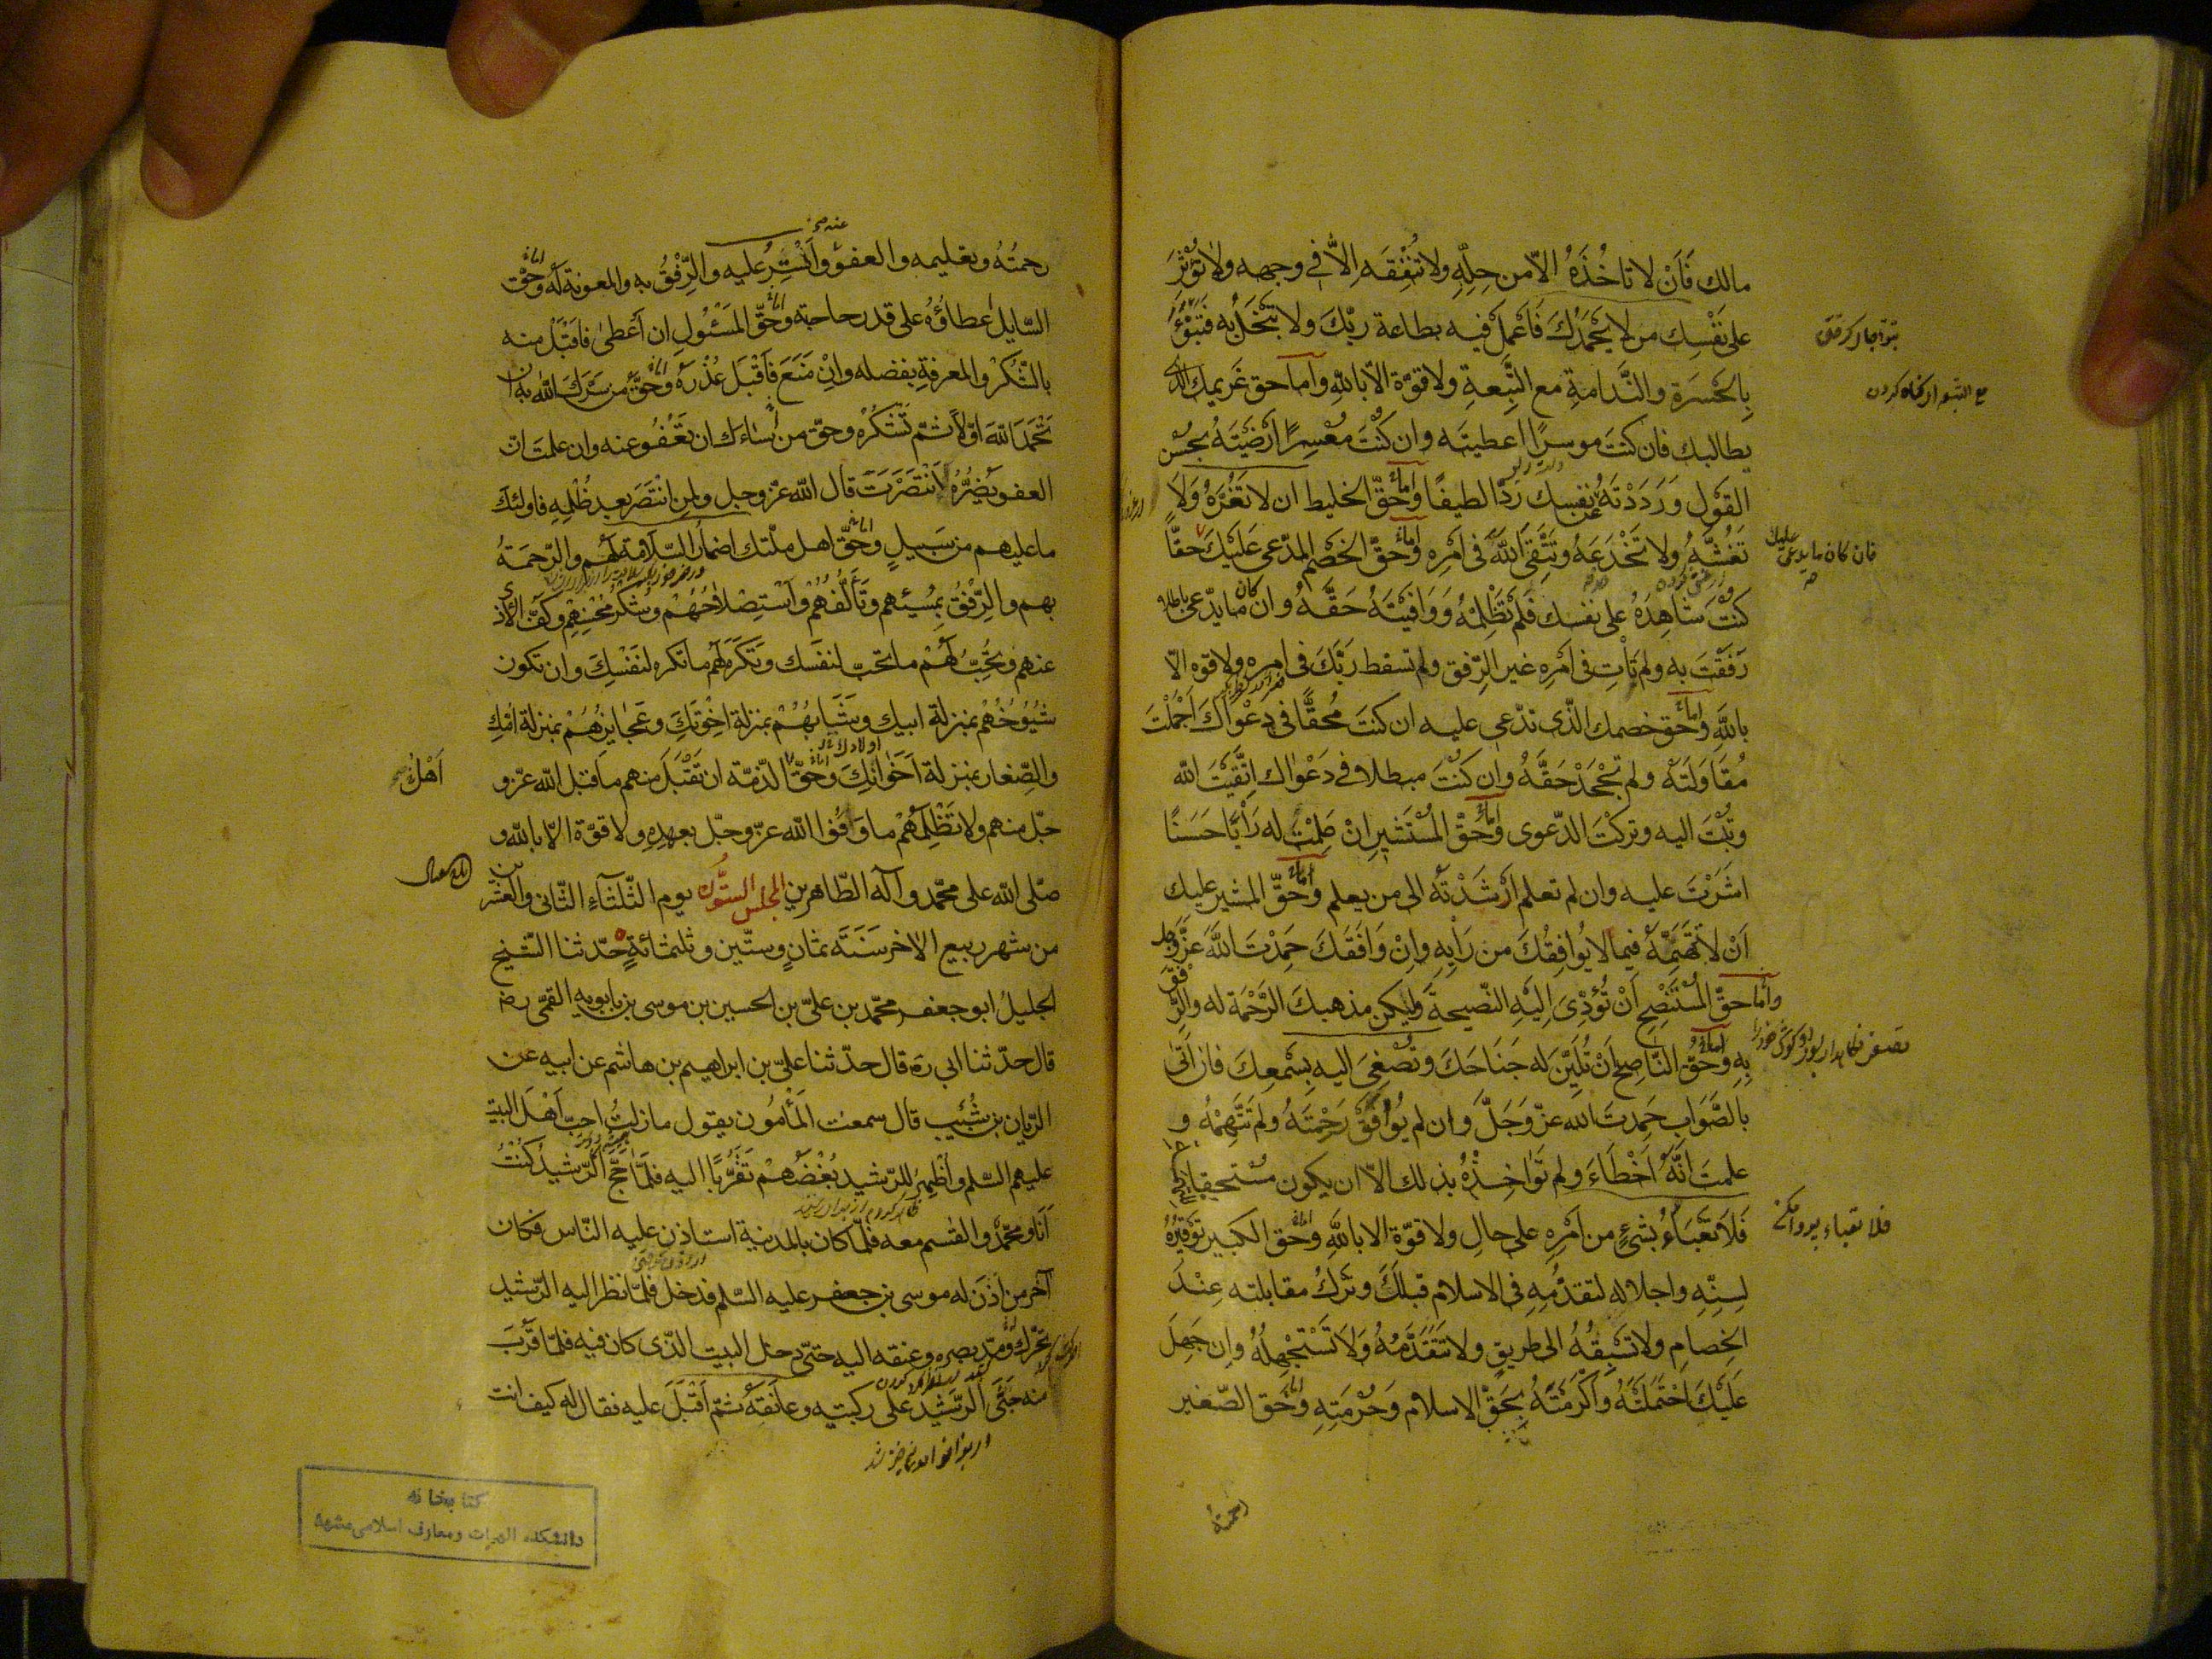 مالك فَاَنْ لا تاخُذَهُ الاّ من حِلِّهِ ولا تُنْفِقَه اِلاَّ في وجهه ولا تُؤْثِرَ
على نَفْسِك من لا يَحْمَدُكَ فَاعْمَلْ فيه بطاعة ربّكَ ولا تَبْخَلْ بِه فَتَبُوْءَ
بِالحَسْرَة والنَّدامةِ مع التَّبِعةِ ولا قوّة الاّ باللّهِ واما حق غَريمك الذى
يطالبك فان كنتَ موسرًا اعطيتَه وان كُنْتَ مُعْسِرًا ارْضَيْتَهُ بِحُسْن
القَوْل وَرَدَدْتَهُ عن نفسِك رَدًّا لطيفًا وامّا حَقّ الخليط ان لا تَغُرَّهُ وَلا
تَغُشَّهُ ولا تَخْدَعَهُ وتَتَّقِىَ اللّٰهَ فى اَمْرِه وامّا حَقّ الخَصْمِ المدّعى عَلَيْكَ حقًّا
كُنْتَ شَاهِدَهُ على نفسك فَلَمْ تَظْلِمْهُ وَوَافَيْتَهُ حَقَّهُ وان كان ما يدّعى باطلا
رَفَقْتَ به ولم تَاْتِ فى اَمْرِه غير الرّفق ولم تسخط رَبَّكَ فى امره ولا قوه الاّ
باللّهِ وامّا حَق خصمك الذّى تدّعى عليه ان كنتَ مُحقًّا فى دعْوَاكَ اَجْمَلْتَ
مُقَاوَلَتَهُ ولم تَجْحَدْ حَقَّهُ وان كنْتَ مبطلا فى دَعْوٰاك اتَّقَيْتَ اللّه
وتُبْتَ اليه وتركْتَ الدّعوى وامّا حَقّ المُسْتَشيرِ انْ عَلِمْتَ له رَاْيًا حَسَنًا
اشَرْتَ عليه وان لم تعلم اَرْشَدْتَهُ الى من يعلم وامّا حَقّ المشير عليك
اَنْ لا تَتَّهِمَهُ فيما لا يُوافِقُكَ من رَاْيِهِ وانْ وَافَقَكَ حَمِدْتَ اللّٰهَ عَزَّ وجل
وامّا حقّ المُسْتَنْصِحِ اَنْ تُؤَدِّىَ اِلَيْهِ النّصيحةَ وليكن مذهبكَ الرَّحْمَة له والرِّفْقَ
بِهِ وامّا حَقّ النّاصِح اَنْ تُلَيِّنَ له جَنَاحَكَ وتُصْغِىَ اليه بِسَمْعِكَ فان اَتىٰ
بالصَّوَاب حَمِدتَ اللّه عزّ وَجَلَّ وان لم يُوافِقْ رَحِمْتَهُ ولم تَتَّهِمْهُ و
علمتَ انَّهُ اَخْطَاءَ ولم تؤاخِذْهُ بذلك الاّ ان يكون مُسْتحِقا
فَلا تَعْبَاْءُ بِشَىْءٍ من اَمْرِه على حالٍ ولا قوّة الا باللّهِ وامّا حَق الكبير تَوْقيرُهُ
لِسِنِّهِ واجلاله لتقدّمِهِ فى الاسلام قبلَكَ وتَرْكُ مقابلته عِنْدَ
الخِصامِ ولا تَسْبِقُهُ الى طريقٍ ولا تَتَقَدَّمُهُ وَلا تَسْتَجْهِلُهُ وان جَهِلَ
عَلَيْكَ احْتَمَلْتَهُ واَكْرَمْتَهُ بِحَقِّ الاسلام وَحُرْمَتِهِ وامّا حَق الصّغير
فان كان ما يدعى عليك
رحمتُهُ وتعليمه والعفو وَالسّتْرُ عليه والرِّفْقُ به والمعونة لَهُ وامّا حَقّ
السّايل اعطاؤُهُ على قدر حاجته وامّا حَقّ المَسْئُولِ ان اَعْطىٰ فاقْبَلْ منه
بالشّكْرِ والمعرفةِ بفضله وانْ مَنَعَ فَاقْبَلْ عُذْرَهُ وامّا حَقّ من سَرّكَ اللّه به ان
تَحْمَدَ اللّهَ اوّلاً ثمّ تَشْكُرُهُ وحقّ من اَسٰاءَكَ ان تَعْفُو عنه وان علمتَ انّ
العفو يَضُرُّهُ انْتَصَرْتَ قال اللّه عزّ وجل ولمن انْتَصَرَ بعد ظُلْمِهِ فاولئكَ
ما عليهم من سَبيلٍ وامّا حَقّ اهل ملّتك اضمارُ السّلامة لَهُم والرّحمَةُ
بهم والرِّفْقُ بِمُسيئهم وتَأَلُّفُهُم وَاسْتِصْلاحُهُمْ وشُكْرُ مُحْسِنِهِم وكفّ الاَذى
عنهم وتُحِبّ لَهُمْ ما تحبّ لنفسَك وتَكْرَه لَهُم ما تكره لنَفْسِكَ وان تكون
شُيُوخُهُم بمنزلة ابيك وشَبَابُهُمْ بمنزلة اخْوَتِكَ وعَجٰايزهُمْ بمنزلة امّك
والصِّغار بمنزلة اَخَوانِكَ وامّا حَقّ الذّمّة ان تَقْبَلَ منهم ما قبل اللّه عزّ و
جلّ منهم ولا تَظْلِمهُمْ ما وَفُوا اللّه عزّ وجلّ بعهدِهِ ولا قوّة الاّ باللّه و
صلّى اللّه على محمّد وآله الطّاهرين المجلس الستّون يوم الثّلثآءِ الثّانى والعشرين
من شهر ربيع الاخر سَنَه ثمانٍ وستّين وثلثمائةٍ حدّثنا الشّيخ
الجليلُ ابو جعفر محمّد بن علىّ بن الحسين بن موسى بن بابويه القمّى رض
قال حدّثنا ابى ره قال حدّثنا علىّ بن ابراهيم بن هاشم عن ابيه عن
الرّيان بن شَبيب قال سمعت المَأمُون يقول ما زلتُ احبّ اَهْلَ البيت
عليهم السّلم واُظْهِرُ للرّشيد بُغْضَهُمْ تَقَرُّبًا اليه فلَمّا حَجّ الرّشيدُ كنْتُ
اَنَا ومحمّد والقسم معه فلمّا كان بالمدينة استاذن عليه النّاس فكان
آخر من اَذِنَ له موسى بن جعفر عليه السّلم فدخل فلمّا نظر اليه الرّشيد
تحرّك ومدّ بصره وعنقه اليه حتىّ دخل البيت الذّى كان فيه فلمّا قَرُبَ
منه جَثَى الرّشيد على ركبتيه وعانَقَهُ ثمّ اَقْبَلَ عليه فقال له كيف انت
اَهْلِ
كتابخانه
دانشكده الهيات ومعارف اسلامى مشهد